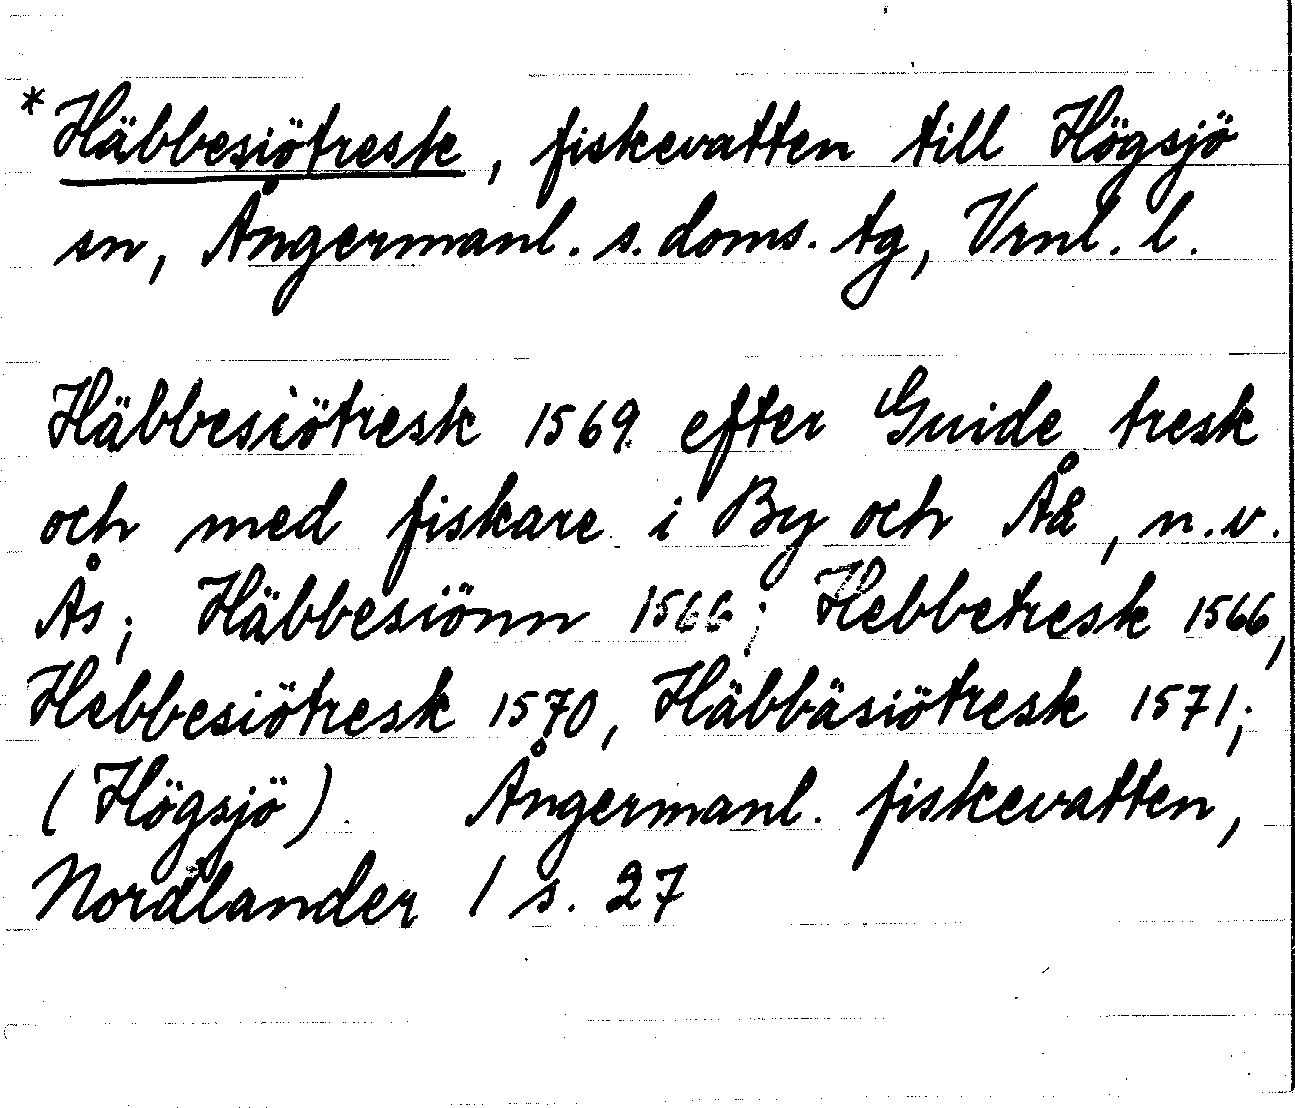 * Häbbesiötresk, fiskevatten till Högsjö
sn, Ångermanl. s. doms. tg, Vrnl. l.
Häbbesiötresk 1569 efter Guide tresk
och med fiskare i By och Åå, n.v.
Ås; Häbbesiönn 1566; Hebbetresk 1566,
Hebbesiötresk 1570, Häbbäsiötresk 1571;
(Högsjö). Ångermanl. fiskevatten,
Nordlander 1 s. 27